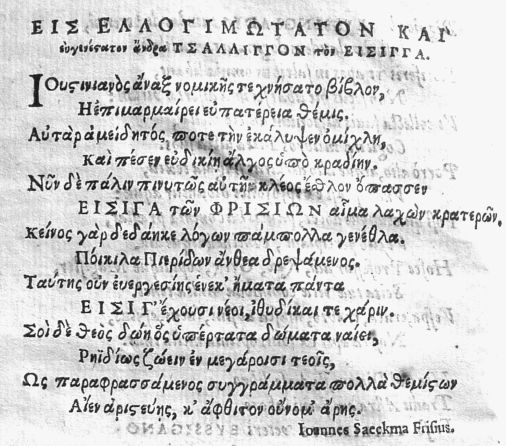 ΕΙΣ ΕΛΛΟΓΙΜΩΤΑΤΟΝ ΚΑΙ
εὐγενέστατον ἄνδρα ΤΣΑΛΛΙΓΓΟΝ τὸν ΕΙΣΙΓΓΑ.
ΙΟυςινιανὸς ἄναξ νομικῆς τεχνήσατο βίβλον,
Ἡ ἐπιμαρμαίρει εὐπατέρεια θέμις.
Αὐτὰρ ἀμειδητός, ποτε τὴν ἐκάλυψεν ὀμίχλη,
Καὶ πέσεν εὐδικίη ἄλγος ὑπὸ κραδίην.
Νῦν δὲ πάλιν πινυτῶς αὐτῇ κλέος ἐθλὸν ὄπασσεν
ΕΙΣΙΓΑ τῶν ΦΡΙΣΙΩΝ αἷμα λαχὼν κρατερῶν.
Κεῖνος γὰρ δεδάηκε λόγων πάμπολλα γενέθλα.
Ποικίλα Πιερίδων ἄνθεα δρεψάμενος.
Ταύτης οὖν ἐυεργεσίης ἕνεκ' ἤματα πάντα
ΕΙΣΙΓ' ἔχουσι νέοι, ἰθυδίκαι τε χάριν.
Σοὶ δὲ θεὸς δώῃ ὃς ὑπέρτατα δώματα ναίει,
Ρηϊδίως ζώειν ἐν μεγάροισι τεοῖς,
Ως παραφρασσάμενος συγγράμματα πολλὰ θεμίςων
Αἰὲν ἀριςεύῃς, κ' ἄφθιτον οὔνομ' ἄρῃς.
Ioannes Saeckma Frisius.